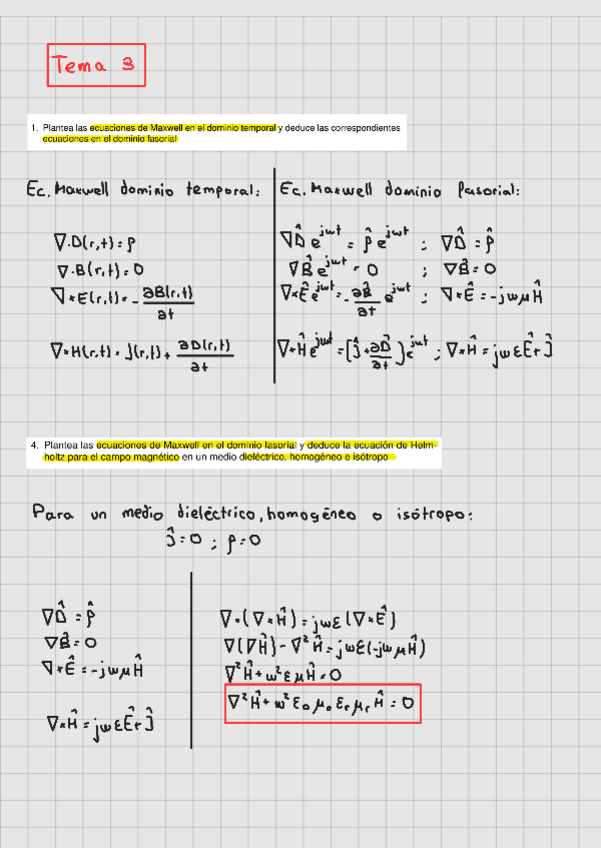 Tema 3
1. Plantea las ecuaciones de Maxwell en el dominio temporal y deduce las correspondientes
ecuaciones en el dominio fasorial
Ec. Maxwell dominio temporal:
∇·D(r,t) = ρ
∇·B(r,t) = 0
∇×E(r,t) = - ∂B(r,t)/∂t
∇×H(r,t) = J(r,t) + ∂D(r,t)/∂t
Ec. Maxwell dominio fasorial:
∇D̂ e^jωt = ρ̂ e^jωt ; ∇D̂ = ρ̂
∇B̂ e^jωt = 0 ; ∇B̂ = 0
∇×Ê e^jωt = - ∂B̂/∂t e^jωt ; ∇×Ê = -jωμĤ
∇×Ĥ e^jωt = [Ĵ + ∂D̂/∂t] e^jωt ; ∇×Ĥ = jωεÊ + Ĵ
4. Plantea las ecuaciones de Maxwell en el dominio fasorial y deduce la ecuación de Helm-
holtz para el campo magnético en un medio dieléctrico, homogéneo e isótropo
Para un medio dieléctrico, homogéneo o isótropo:
Ĵ = 0 ; ρ = 0
∇D̂ = ρ̂
∇B̂ = 0
∇×Ê = -jωμĤ
∇×Ĥ = jωεÊ + Ĵ
∇×(∇×Ĥ) = jωε(∇×Ê)
∇(∇Ĥ) - ∇²Ĥ = jωε(-jωμĤ)
∇²Ĥ + ω²εμĤ = 0
∇²Ĥ + ω²ε₀μ₀εᵣμᵣĤ = 0